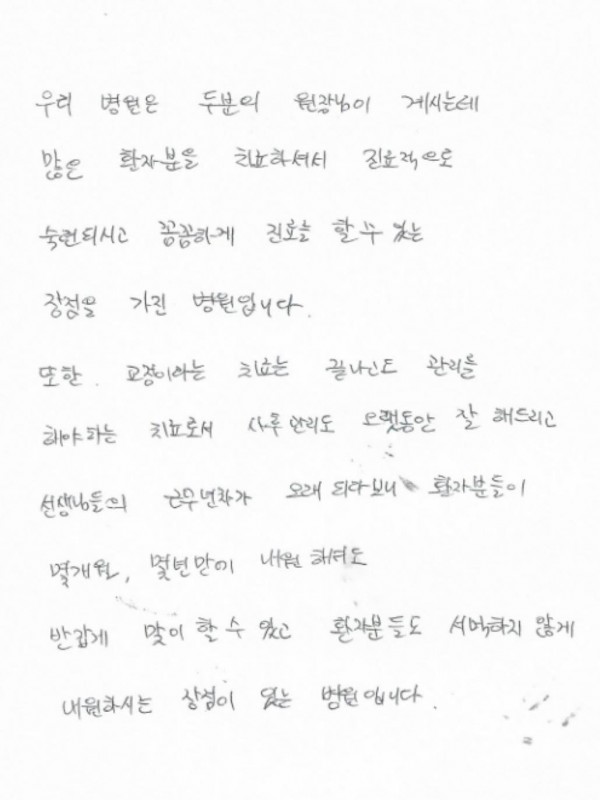 우리 병원은 두분의 원장님이 계시는데
많은 환자분을 치료하셔서 진료적으로
숙련되시고 꼼꼼하게 진료를 할 수 있는
장점을 가진 병원입니다.
또한. 교정이라는 치료는 끝나고도 관리를
해야하는 치료로서 사후관리도 오랫동안 잘 해드리고
선생님들의 근무년차가 오래 되다보니 환자분들이
몇개월, 몇년만이 내원 하셔도
반갑게 맞이 할 수 있고 환자분들도 서먹하지 않게
내원하시는 장점이 있는 병원입니다.